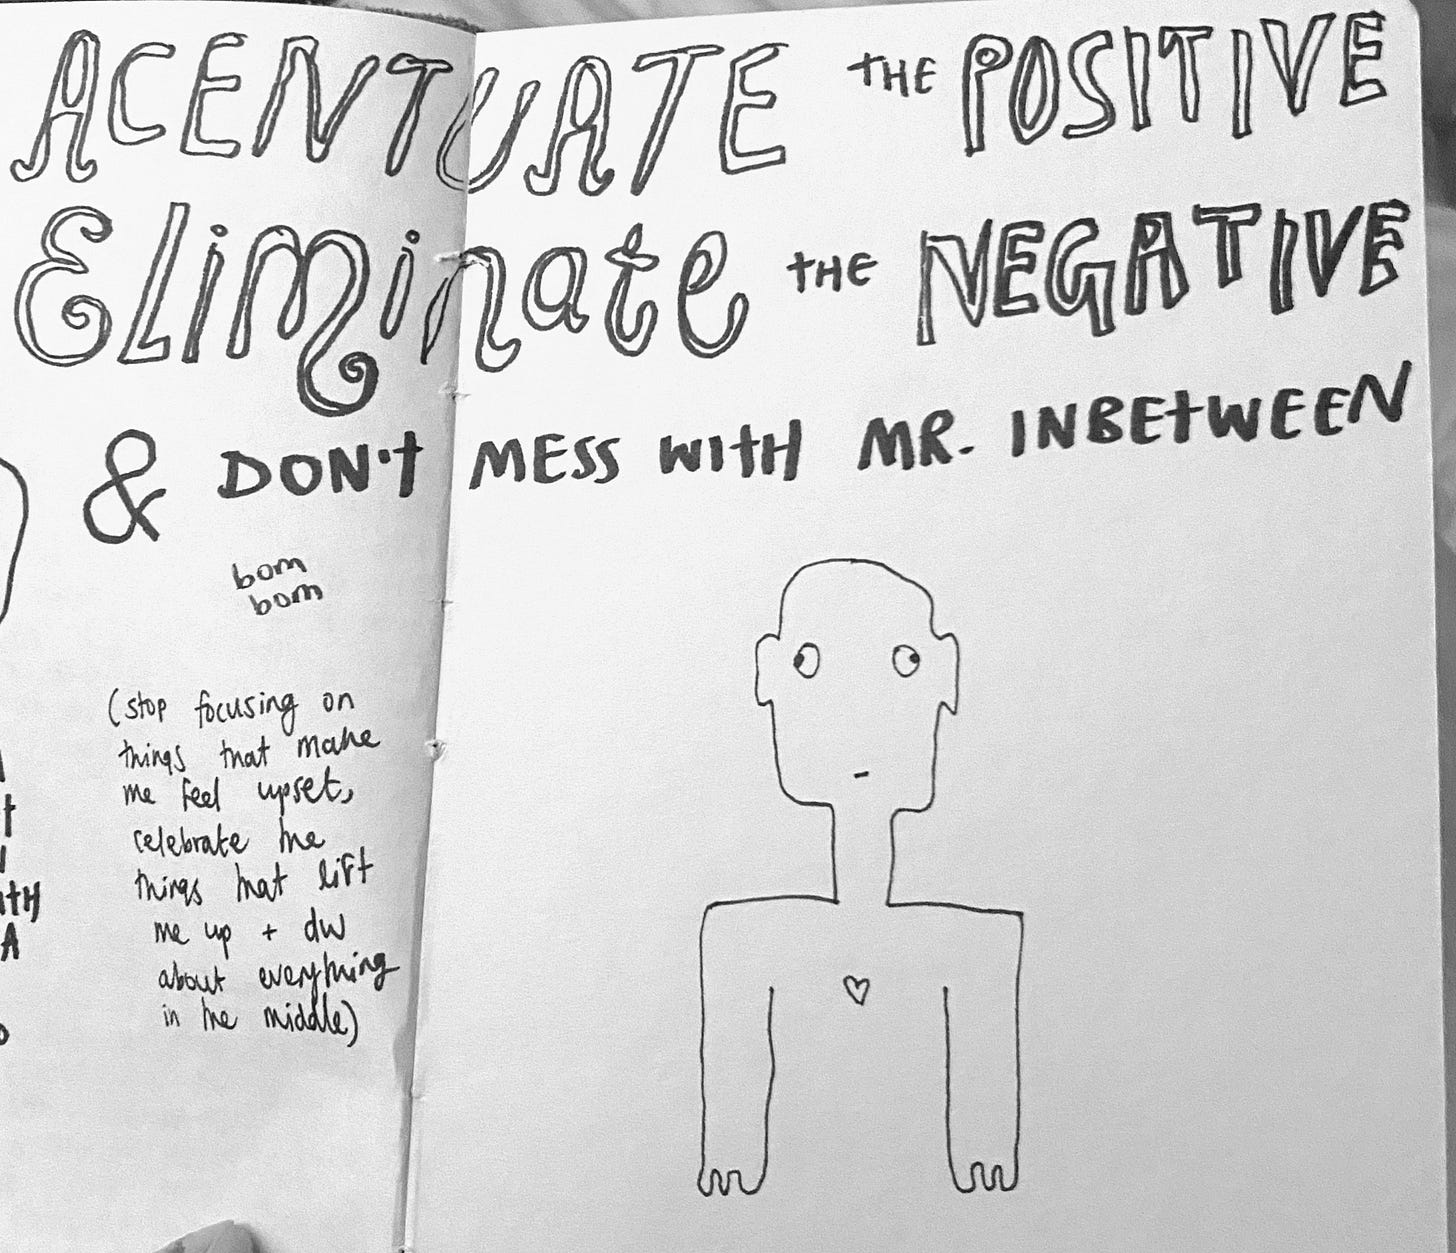 ACENTUATE THE POSITIVE
Eliminate THE NEGATIVE
& DON't MESS WITH MR. INBETWEEN
bom
bom
(stop focusing on
things that make
me feel upset,
celebrate the
things that lift
me up + dw
about everything
in the middle)
t
ItH
A